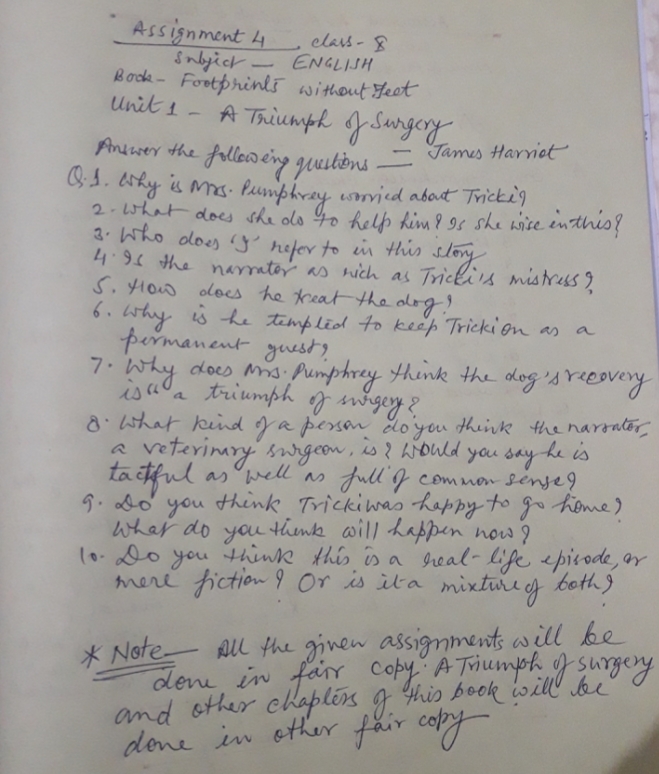 Assignment 4, class - 8
Subject — ENGLISH
Book - Footprints without Feet
Unit 1 - A Triumph of Surgery
— James Harriot
Answer the following questions
Q.1. Why is Mrs. Pumphrey worried about Tricki?
2. What does she do to help him? Is she wise in this?
3. Who does 'I' refer to in this story
4. Is the narrator as rich as Tricki's mistress?
5. How does he treat the dog?
6. Why is he tempted to keep Tricki on as a
permanent guest?
7. Why does Mrs. Pumphrey think the dog's recovery
is "a triumph of surgery?
8. What kind of a person do you think the narrator,
a veterinary surgeon, is? Would you say he is
tactful as well as full of common sense?
9. Do you think Tricki was happy to go home?
What do you think will happen now?
10. Do you think this is a real-life episode, or
mere fiction? Or is it a mixture of both?
* Note — All the given assignments will be
done in fair copy. A Triumph of surgery
and other chapters of this book will be
done in other fair copy